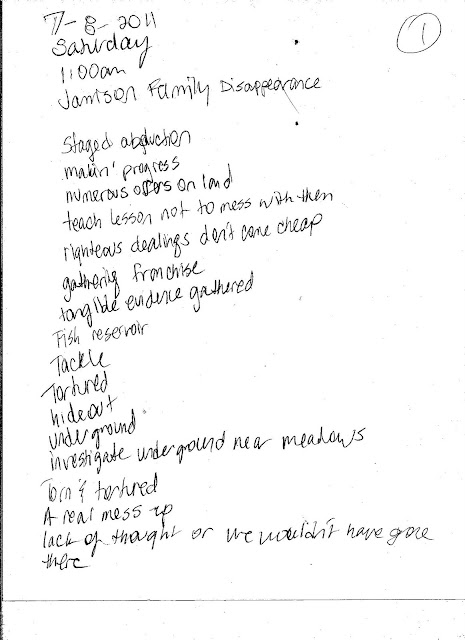 7-8-2011
1
Saturday
1:00am
Jamison Family Disappearance
Staged abduction
makin' progress
numerous offers on land
teach lesson not to mess with them
righteous dealings don't come cheap
gathering franchise
tangible evidence gathered
Fish reservoir
Tackle
Tortured
hideout
underground
investigate underground near meadows
Torn & tortured
A real mess up
lack of thought or we wouldn't have gone
there